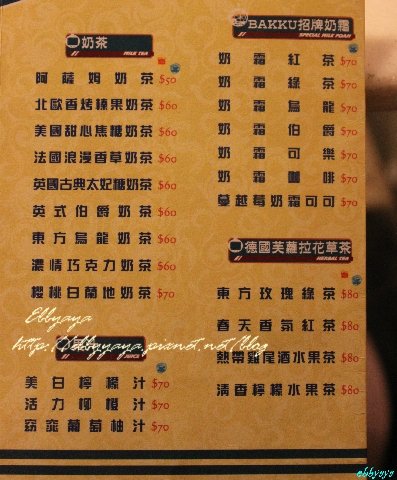 奶茶
MILK TEA
阿薩姆奶茶 $50
北歐香烤榛果奶茶 $60
美國甜心焦糖奶茶 $60
法國浪漫香草奶茶 $60
英國古典太妃糖奶茶 $60
英式伯爵奶茶 $60
東方烏龍奶茶 $60
濃情巧克力奶茶 $60
櫻桃白蘭地奶茶 $70
Ebbyaya
http://ebbyyaya.pixnet.net/blog
JUICE
美白檸檬汁 $70
活力柳橙汁 $70
窈窕葡萄柚汁 $70
BAKKU招牌奶霜
SPECIAL MILK FOAM
奶霜紅茶 $70
奶霜綠茶 $70
奶霜烏龍 $70
奶霜伯爵 $70
奶霜可樂 $70
奶霜咖啡 $70
蔓越莓奶霜可可 $70
德國芙蘿拉花草茶
HERBAL TEA
東方玫瑰綠茶 $80
春天香氛紅茶 $80
熱帶雞尾酒水果茶 $80
清香檸檬水果茶 $80
ebbyaya